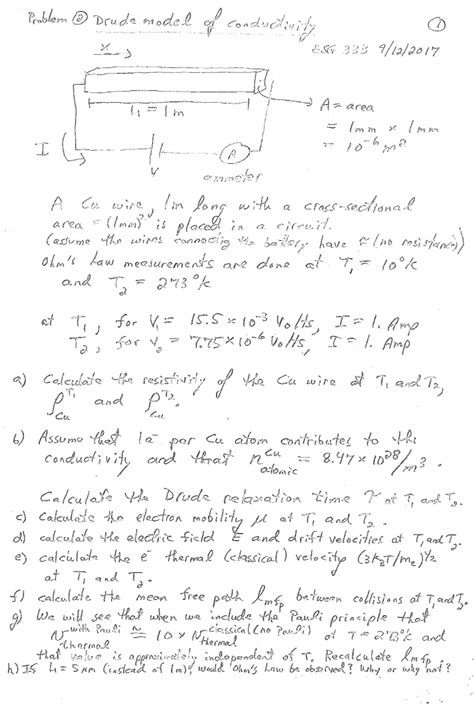 Problem ② Drude model of conductivity
①
ESG 333 9/12/2017
x
l₁ = 1m
A = area
= 1mm x 1mm
= 10⁻⁶ m²
I
V
A
ammeter
A Cu wire 1m long with a cross-sectional
area = (1mm)² is placed in a circuit.
(assume the wires connecting the battery have ≈ no resistance)
Ohm's Law measurements are done at T₁ = 10°K
and T₂ = 273°K
at T₁, for V₁ = 15.5 x 10⁻³ Volts, I = 1. Amp
T₂, for V₂ = 7.75 x 10⁻⁶ Volts, I = 1. Amp
a) Calculate the resistivity of the Cu wire at T₁ and T₂,
ρ_Cu^T₁ and ρ_Cu^T₂.
b) Assume that 1e⁻ per Cu atom contributes to the
conductivity and that n_atomic^Cu = 8.47 x 10²⁸/m³.
Calculate the Drude relaxation time τ at T₁ and T₂.
c) Calculate the electron mobility μ at T₁ and T₂.
d) calculate the electric field E and drift velocities at T₁ and T₂.
e) calculate the e⁻ thermal (classical) velocity (3k_BT/m_e)^½
at T₁ and T₂.
f) calculate the mean free path l_mfp between collisions at T₁ and T₂.
g) We will see that when we include the Pauli principle that
v_thermal^with Pauli ≈ 10 x v_thermal^classical (no Pauli) at T = 273°K and
that value is approximately independent of T. Recalculate l_mfp.
h) If l₁ = 5μm (instead of 1m), would Ohm's Law be observed? Why or why not?